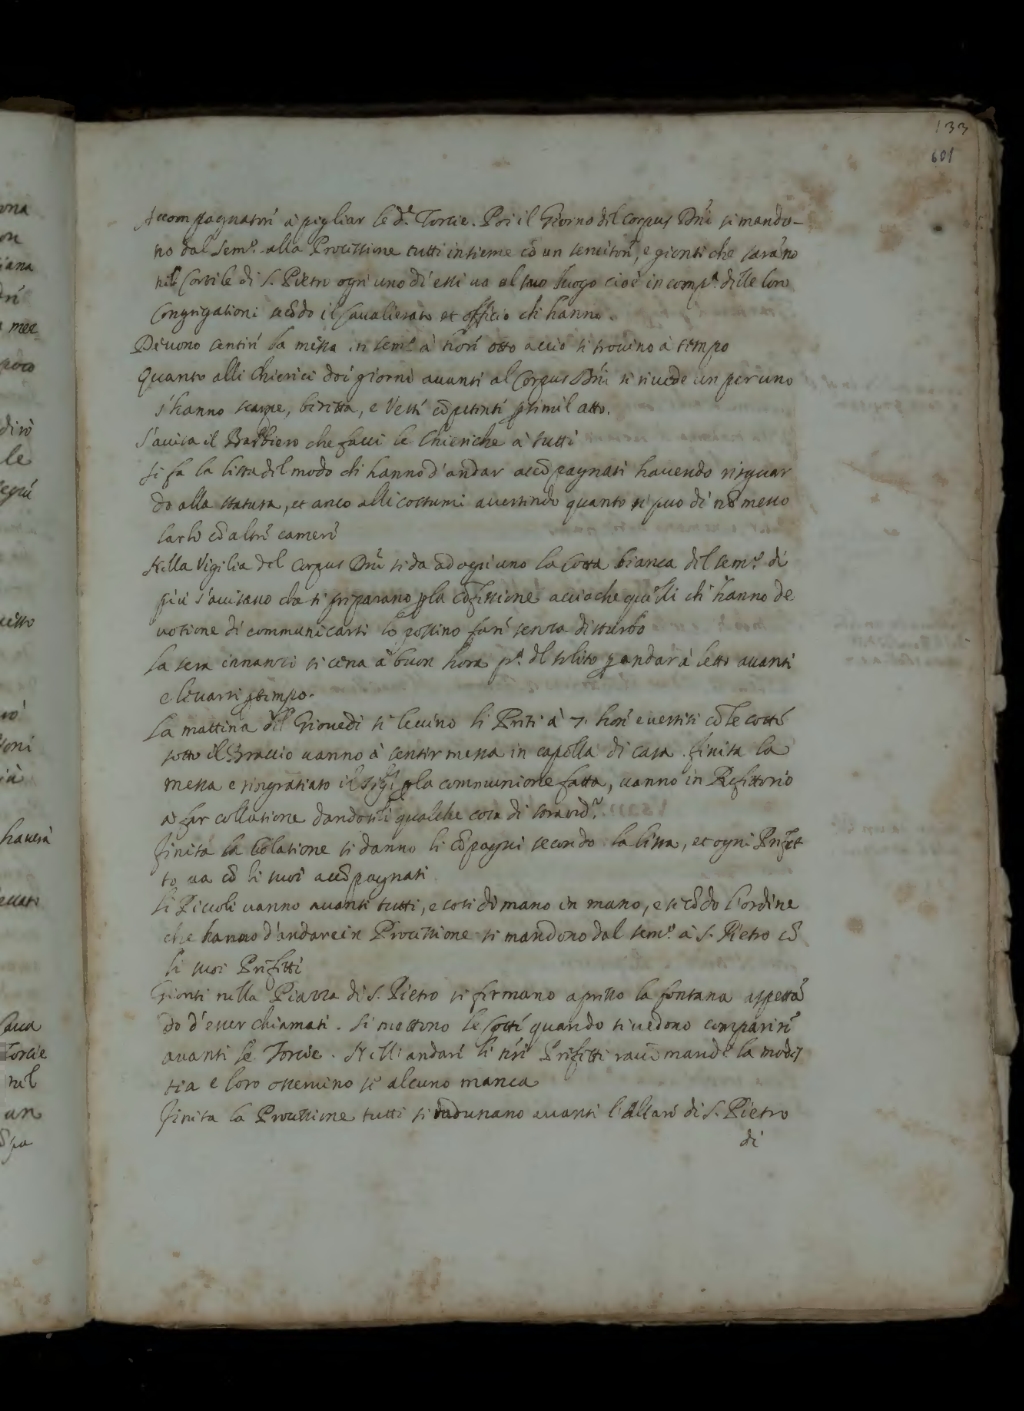 133
601
Accompagnatori à pigliar le d.e Torcie. Poi il Giorno del Corpus Dñi si manda-
no dal Sem.o alla Processione tutti insieme cõ un servitore, e gionti che sarãno
nel Cortile di S. Pietro ogni uno di essi va al suo luogo cioè in comp.a delle loro
Congregationi secõdo il Cavalierato et officio ch hanno.
Devono sentire la messa in sem.o à hore otto acciò si trovino à tempo
Quanto alli Chierici doi giorni avanti al Corpus Dñi si rivede un per uno
s'hanno scarpe, biretta, e Vesti cõpetenti p simil atto.
S'avisa il Barbiero che facci le Chieriche à tutti
Si fa la lista del modo ch hanno d'andar accõpagnati havendo risguar
do alla statura, et anco alli costumi avertendo quanto si puo di nõ mesco
larli cõ altre camere
Nella Vigilia del Corpus Dñi si da ad ogni uno la Cotta bianca del sem.o di
più s'avisano che si preparano p la cõfessione acciochè quelli ch' hanno de
votione di communicarsi lo possino fare senza disturbo
La sera innanzi si cena à buon hora p.a del solito p andar à letto avanti
e levarsi p tempo.
La mattina del Giovedi si levino li Preti à 7. hore e vestiti cõ le cotte
sotto il Braccio vanno à sentir messa in capella di casa. finita la
messa e ringratiato il Sig.r p la communione fatta, vanno in Refettorio
à far collatione dandoseli qualche cosa di
finita la colatione si danno li cõpagni secondo la lista, et ogni Prefet
to va cõ li suoi accõpagnati.
Li Piccoli vanno avanti tutti, e cosi di mano in mano, e secõdo l'ordine
che hanno d'andare in Processione si mandono dal sem.o à S. Pietro cõ
li suoi Prefetti
Gionti nella Piazza di S. Pietro si fermano apresso la fontana aspettã
do d'esser chiamati. Si mettino le Cotte quando si vedono comparire
avanti le Torcie. Nelli andare li nři Prefetti racõmandẽ la modes
tia e loro osservino se alcuno manca
finita la Processione tutti si radunano avanti l'Altare di S. Pietro
di